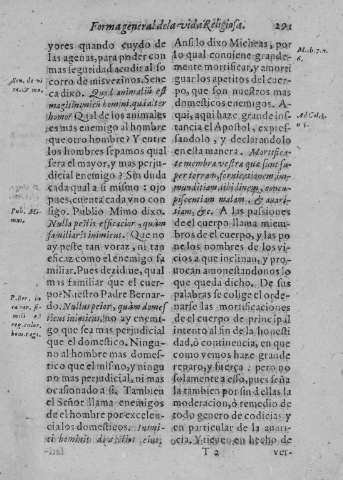 Forma general de la vida Religiosa. 291
yores quando cuydo de
las agenas, para poder con
mas seguridad acudir al so
corro de mis vezinos. Sene
ca dixo. Quod animaliũ est
magis inimicũ homini, quia ter
homo? Qual de los animales
es mas enemigo al hombre
que otro hombre? Y entre
los hombres sepamos qual
sera el mayor, y mas perju
dicial enemigo? Sin duda
cada qual a si mismo: ojo
pues, cuenta cada vno con
sigo. Publio Mimo dixo.
Nulla pestis efficacior, quàm
familiaris inimicus. Que no
ay peste tan voraz, ni tan
eficaz como el enemigo fa
miliar. Pues dezidme, qual
mas familiar que el cuer-
po? Nuestro Padre Bernar-
do. Nullus peior, quàm domes
ticus inimicus, no ay enemi-
go que sea mas perjudicial
que el domestico. Ningu-
no al hombre mas domes-
tico que el mismo, y ningu
no mas perjudicial, ni mas
ocasionado a si. Tambien
el Señor llama enemigos
de el hombre por excelen-
cia los domesticos. Inimi-
ci hominis domestici eius,
Ansi lo dixo Micheas, por
lo qual conviene grande-
mente mortificar, y amorti
guar los apetitos del cuer-
po, que son nuestros mas
domesticos enemigos. A-
qui, aqui haze grande ins-
tancia el Apostol, expres-
sandolo, y declarandolo
en esta manera. Mortifica-
te membra vestra quæ sunt su
per terram, fornicationem, im-
munditiam, libidinem, concu-
piscentiam malam, & auari-
tiam, &c. A las passiones
de el cuerpo llama miem-
bros de el cuerpo, y las po
ne los nombres de los vi-
cios a que inclinan, y pro-
uocan amonestandonos lo
que queda dicho. De sus
palabras se colige el orde-
narse las mortificaciones
de el cuerpo de principal
intento al fin de la honesti
dad, ò continencia, en que
como vemos haze grande
reparo, y fuerça: pero no
solamente a esso, pues seña
la tambien por sin dellas la
moderacion, ò remedio de
todo genero de codicias y
en particular de la aua-
ricia. Y tienen en hecho de
T 2 ver-
Pub. Mi-
mus.
Mich. 7. n.
6.